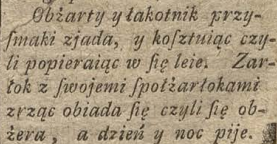 Obżarty y łakotnik przy-
ſmaki zjada, y koſztuiąc czy-
li popieraiąc w ſię leie. Żar-
łok z ſwojemi ſpołżarłokami
zrząc obiada ſię czyli ſię ob-
żera, a dzień y noc pije.